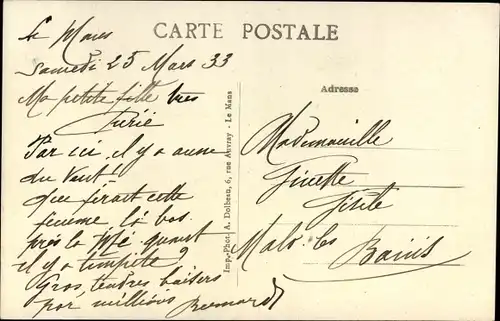 CARTE POSTALE
Le Mans
Samedi 25 Mars 33
Ma petite fille très
Par ici, il y a aussi
du Vent!
Que ferait cette
femme là bas
près la quand
il y a tempête?
Gros tendres baisers
par millions Bernard
Imp.-Phot. A. Dolbeau, 6, rue Auvray - Le Mans
Adresse
Mademoiselle
Ginette
Malo-les
Bains